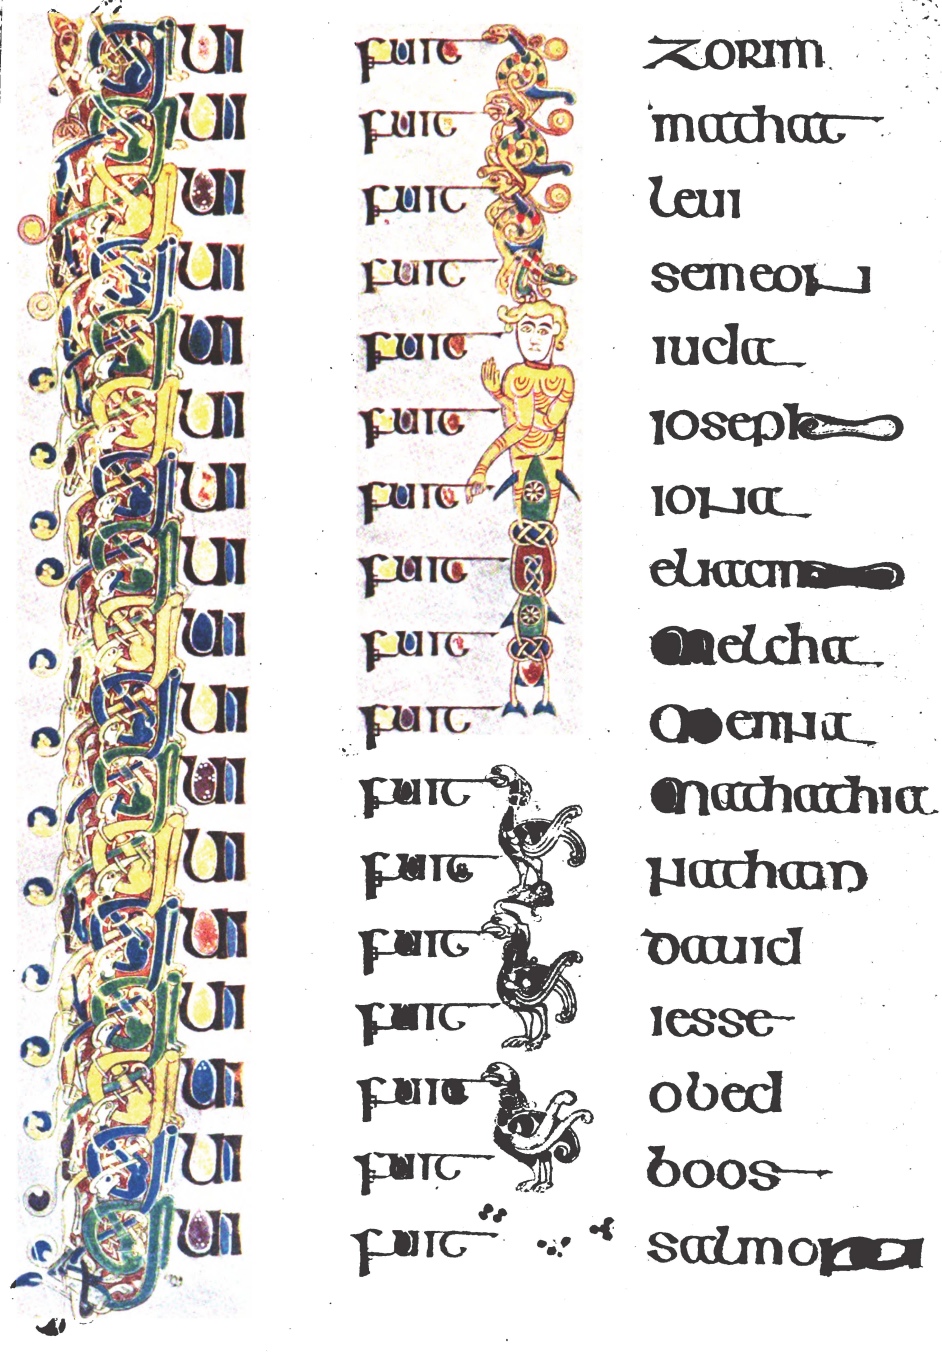 QUI fuit zorim
QUI fuit mathat
QUI fuit leui
QUI fuit semeon
QUI fuit iuda
QUI fuit ioseph
QUI fuit iona
QUI fuit eliacim
QUI fuit melcha
QUI fuit
QUI fuit mathathia
QUI fuit nathan
QUI fuit dauid
QUI fuit iesse
QUI fuit obed
QUI fuit boos
QUI fuit salmon